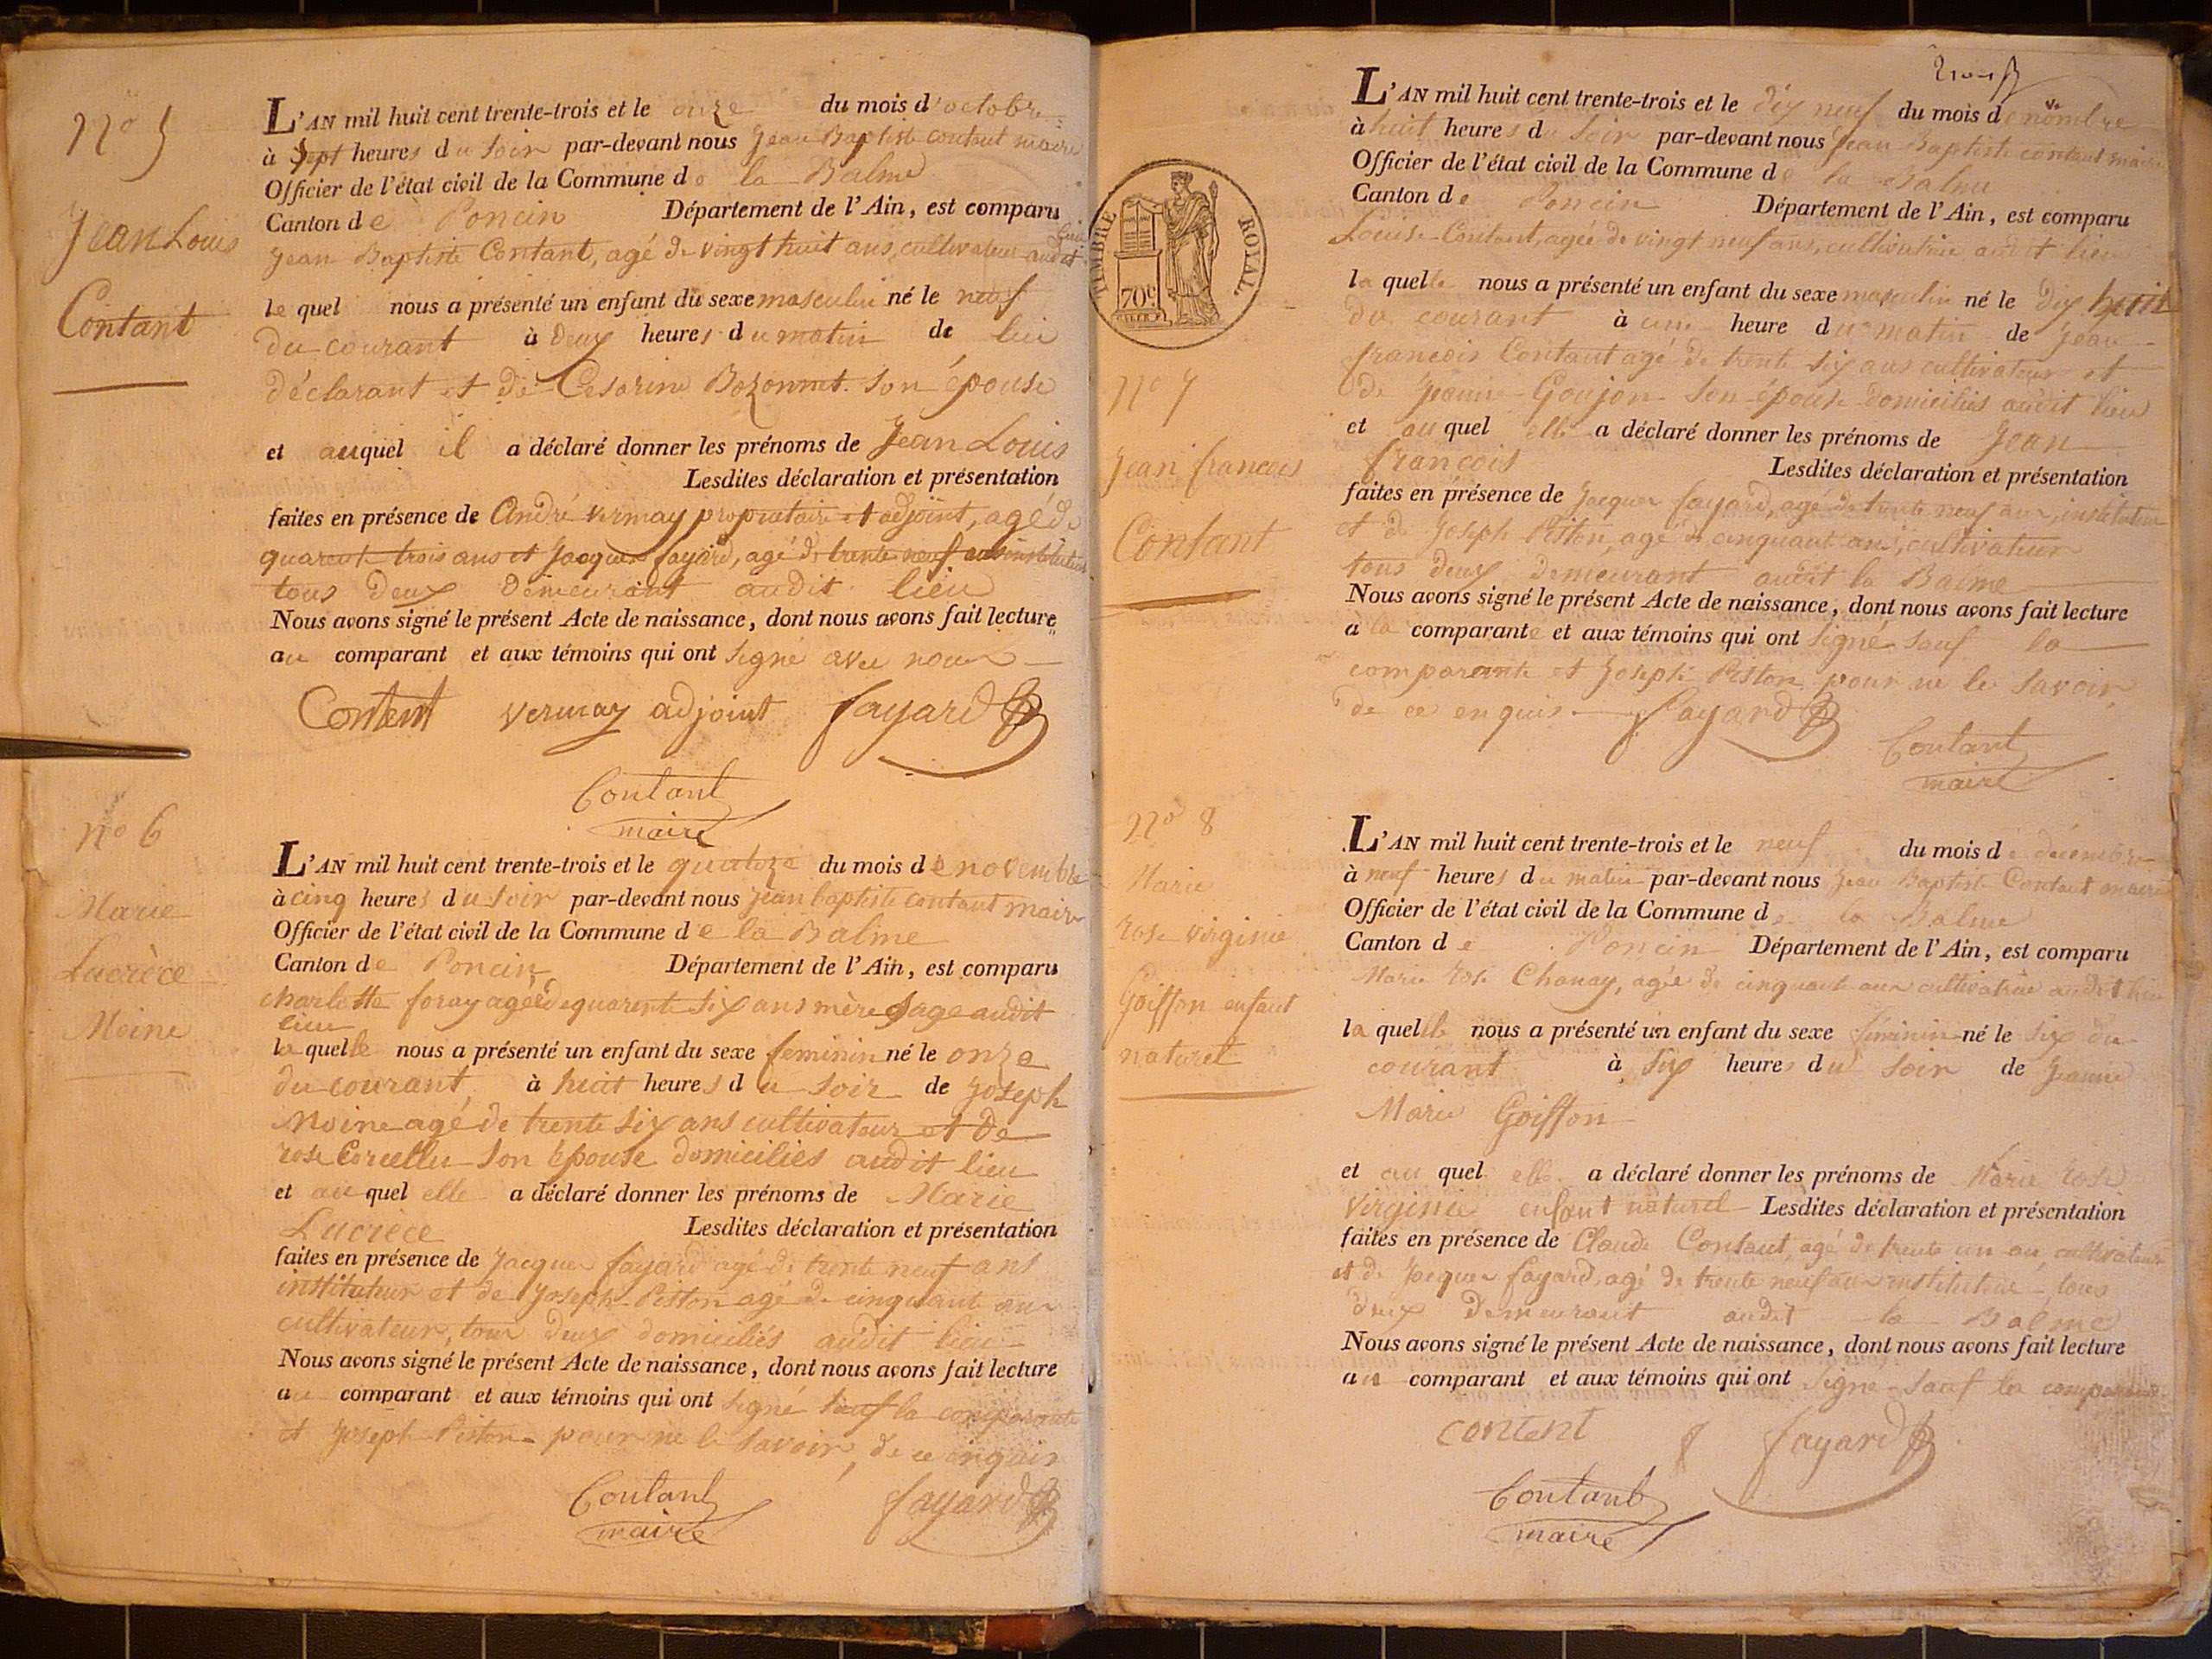 N° 5
Jean Louis
Contant
L'AN mil huit cent trente-trois et le onze du mois d'octobre
à sept heures du soir par-devant nous Jean Baptiste contant maire
Officier de l'état civil de la Commune de la Balme
Canton de Poncin Département de l'Ain, est comparu
Jean Baptiste Contant, agé de vingt huit ans, cultivateur audit lieu
le quel nous a présenté un enfant du sexe masculin né le neuf
du courant à deux heures du matin de lui
déclarant et de Cesarine Bozonnet son épouse
et auquel il a déclaré donner les prénoms de Jean Louis
Lesdites déclaration et présentation
faites en présence de André vermay propriétaire et adjoint, agé de
quarente trois ans et Jacques fayard, agé de trente neuf ans instituteur
tous deux demeurant audit lieu
Nous avons signé le présent Acte de naissance, dont nous avons fait lecture
au comparant et aux témoins qui ont signé avec nous
Contant vermay adjoint fayard
Contant
maire
n° 6
Marie
Lucrèce
Moine
L'AN mil huit cent trente-trois et le quatorze du mois de novembre
à cinq heures du soir par-devant nous jean baptiste contant maire
Officier de l'état civil de la Commune de la Balme
Canton de Poncin Département de l'Ain, est comparu
charlotte foray agée de quarente six ans mère sage audit
lieu
la quelle nous a présenté un enfant du sexe feminin né le onze
du courant, à huit heures du soir de joseph
Moine agé de trente six ans cultivateur et de
rose Corcellu son épouse domiciliés audit lieu
et au quel elle a déclaré donner les prénoms de Marie
Lucrèce Lesdites déclaration et présentation
faites en présence de Jacques fayard agé de trente neuf ans
instituteur et de Joseph Piston agé de cinquante ans
cultivateur, tous deux domiciliés audit lieu
Nous avons signé le présent Acte de naissance, dont nous avons fait lecture
au comparant et aux témoins qui ont signé sauf la comparante
et Joseph Piston pour ne le savoir, de ce enquis
Contant
maire
fayard
L'AN mil huit cent trente-trois et le dix neuf du mois de novembre
à huit heures du soir par-devant nous Jean Baptiste contant maire
Officier de l'état civil de la Commune de la Balme
Canton de Poncin Département de l'Ain, est comparu
Louise Contant, agée de vingt neuf ans, cultivatrice audit lieu
TIMBRE ROYAL
70c
n° 7
Jean francois
Contant
la quelle nous a présenté un enfant du sexe masculin né le dix huit
du courant à une heure du matin de Jean
francois Contant agé de trente six ans cultivateur et
de Jeanne Goujon son épouse domiciliés audit lieu
et au quel elle a déclaré donner les prénoms de Jean
françois Lesdites déclaration et présentation
faites en présence de Jacques fayard, agé de trente neuf ans, instituteur
et de Joseph Piston, agé de cinquante ans, cultivateur
tous deux demeurant audit la Balme
Nous avons signé le présent Acte de naissance, dont nous avons fait lecture
a la comparante et aux témoins qui ont signé sauf la
comparante et Joseph Piston pour ne le savoir
de ce enquis fayard
Contant
maire
N° 8
Marie
rose virginie
Goiffon enfant
naturel
L'AN mil huit cent trente-trois et le neuf du mois de décembre
à neuf heures du matin par-devant nous Jean Baptiste Contant maire
Officier de l'état civil de la Commune de la Balme
Canton de Poncin Département de l'Ain, est comparu
Marie Rose Chanay, agée de cinquante ans cultivatrice audit lieu
la quelle nous a présenté un enfant du sexe féminin né le six du
courant à six heures du soir de Jeanne
Marie Goiffon
et au quel elle a déclaré donner les prénoms de Marie rose
Virginie enfant naturel Lesdites déclaration et présentation
faites en présence de Claude Contant, agé de trente un an, cultivateur
et de Jacques fayard, agé de trente neuf ans instituteur tous
deux demeurant audit la Balme
Nous avons signé le présent Acte de naissance, dont nous avons fait lecture
au comparant et aux témoins qui ont signé sauf la comparante
content fayard
Contant
maire